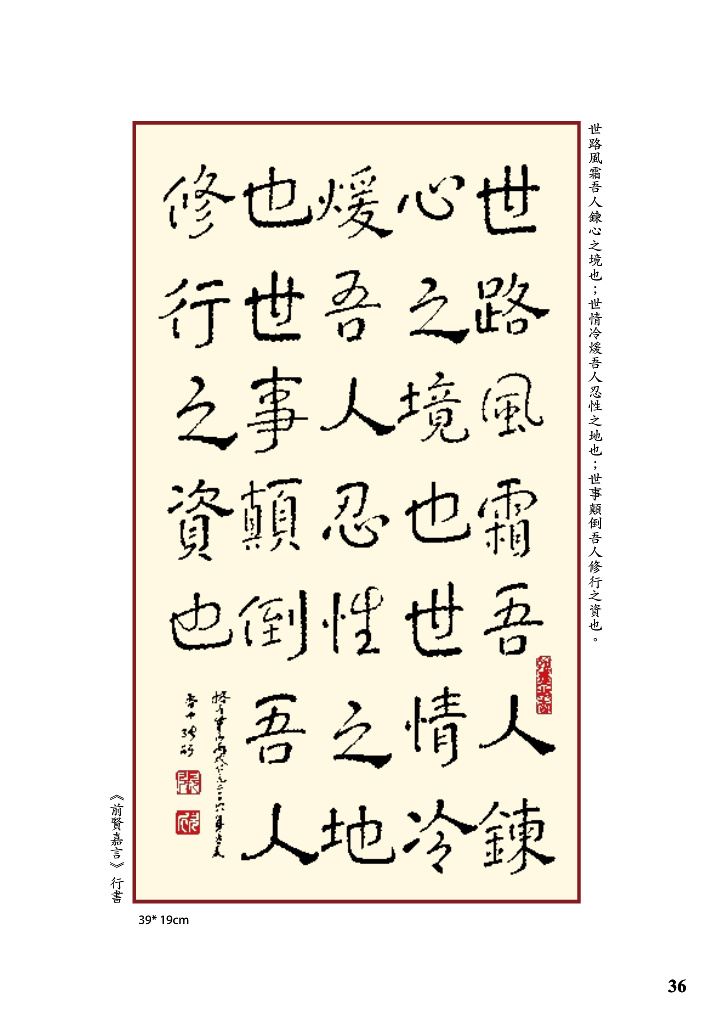 世路風霜吾人鍊心之境也；世情冷煖吾人忍性之地也；世事顛倒吾人修行之資也。
世路風霜吾人鍊
心之境也世情冷
煖吾人忍性之地
也世事顛倒吾人
修行之資也
《前賢嘉言》行書
39* 19cm
36